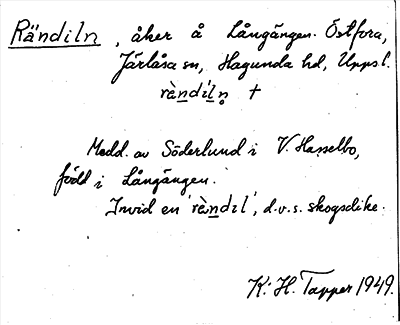 Rändiln, åker å Långängen. Östfora,
Järlåsa sn, Hagunda hd, Uppsl.
rèndíln̥ +
Medd. av Söderlund i V. Hasselbo,
född i Långängen.
Invid en 'rèndıl', d.v.s. skogsdike.
K. H. Tapper 1949.